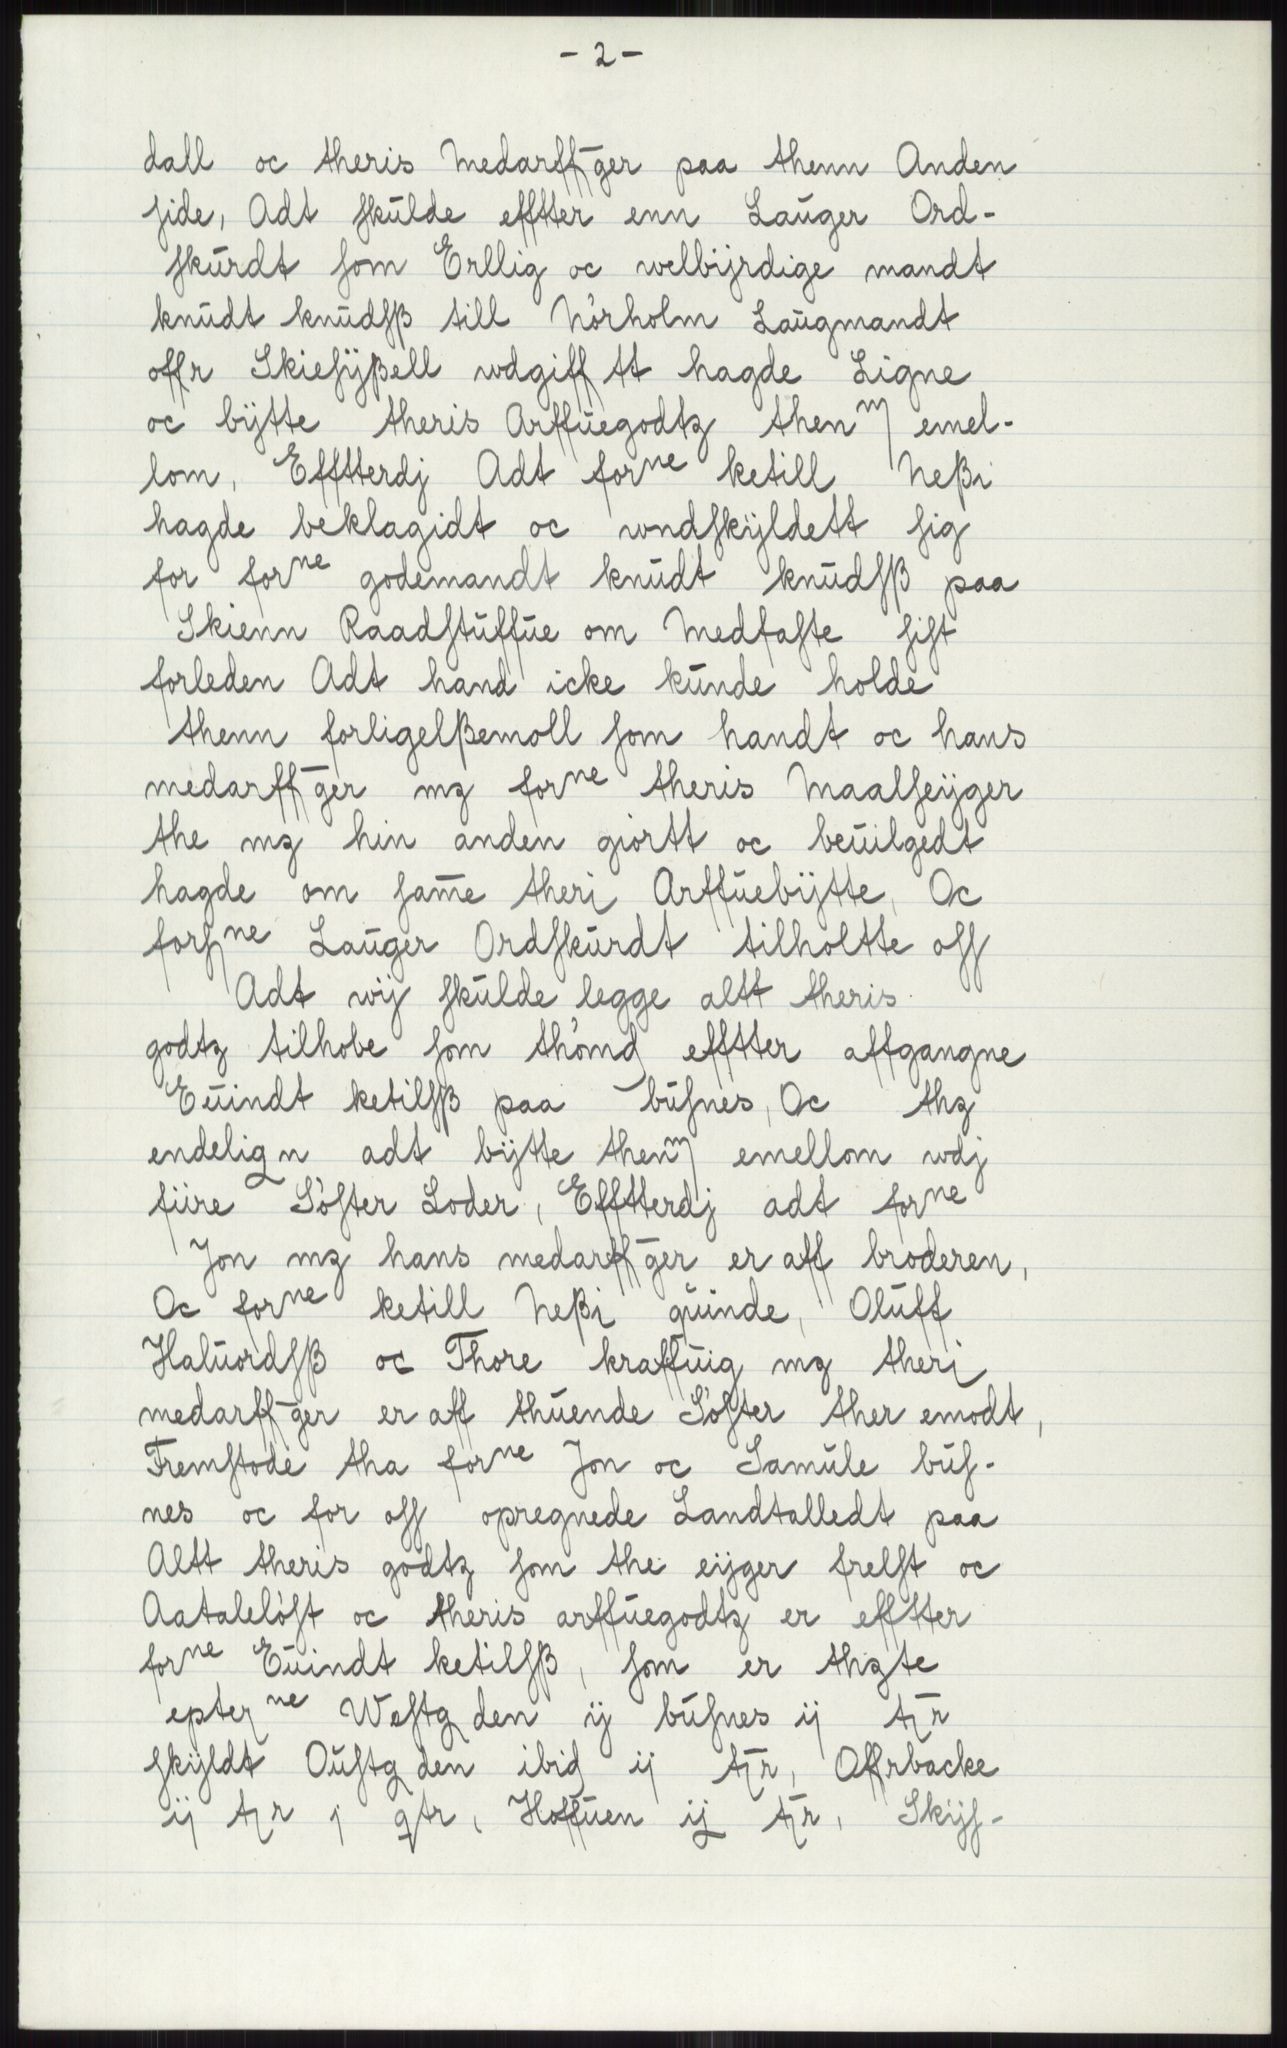 - 2 -
dall oc theris Medarffḡer paa thenn Anden
ſide, Adt ſkulde effter enn Lauger Ord-
ſkurdt ſom Erllig oc welbijrdige mandt
knudt knudſß till Nörholm Laugmandt
offr Skieſÿßell wdgifftt hagde Ligne
oc bÿtte theris Arffuegodtz thenm emel-
lom, Efftterdj Adt forne ketill Neßi
hagde beklagidt oc wndſkÿldett ſig
for forne godemandt knudt knudſß paa
Skienn Raadſtuffue om Medfaſte ſiſt
forleden Adt hand icke kunde holde
thenn forligelßemoll ſom handt oc hans
medarffḡer mz forne theris Maalſeÿger
the mz hin anden giortt oc beuilgedt
hagde om ſam̄e theri Arffuebÿtte, Oc
forſne Lauger Ordſkurdt tilholtte oſſ
Adt wÿ ſkulde legge altt theris
godtz tilhobe ſom thömd efftter affgangne
Euindt ketilſß paa buſnes, Oc thz
endelign adt bÿtte thenm emellom wdj
fiire Söſter Loder, Efftterdj adt forne
Jon mz hans medarffḡer er aff broderen,
Oc forne ketill Neßi quinde, Oluff
Haluordſß oc Thore kraffuig mz theri
medarffḡer er aff thuende Söſter ther emodt,
Fremſtode tha forne Jon oc Samule buſ-
nes oc for oſſ opregnede Landtalledt paa
Altt theris godtz ſom the eÿger frelſt oc
Aatalelöſt oc theris arffuegodtz er effter
forne Euindt ketilſß, ſom er thzte
epterne Weſtg den ÿ buſnes ij tr̄
ſkÿldt Ouſtg den ibid ij tr̄, Offrbacke
ij tr j qtr, Hoffuen ij tr̄, Skÿſ-